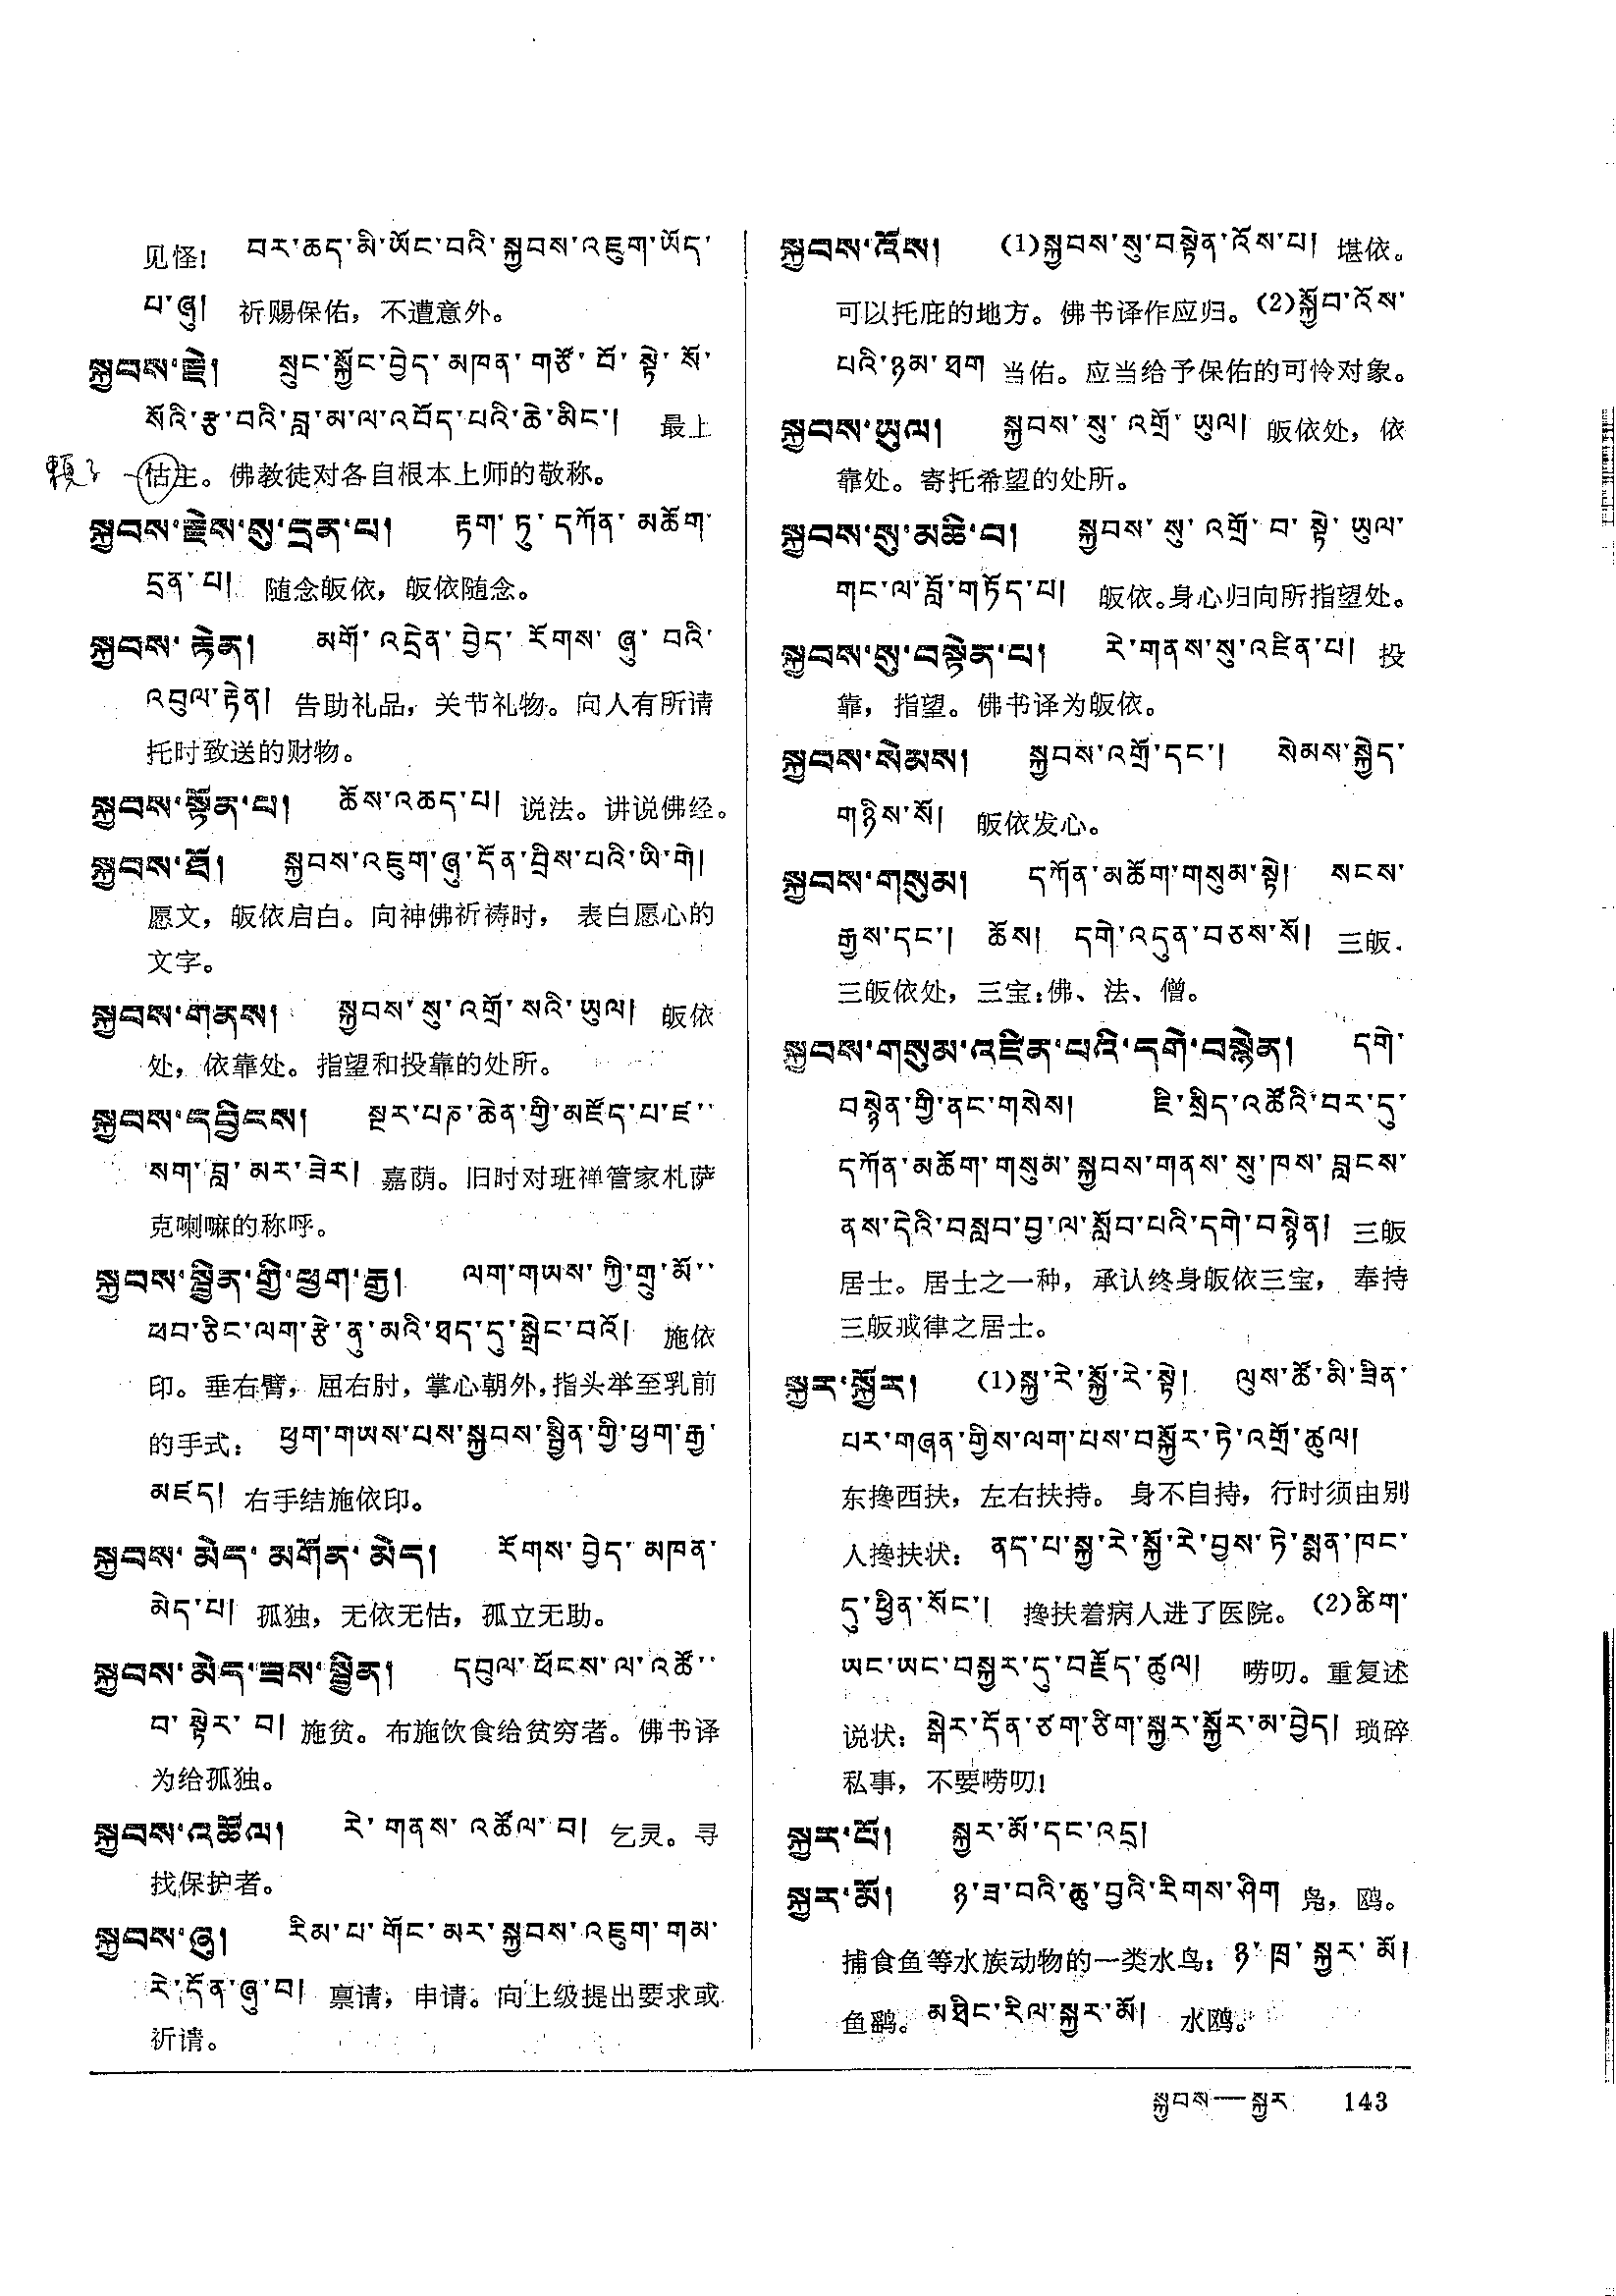 见怪! བར་ཆད་མི་ཡོང་བའི་སྐྱབས་འཇུག་ཡོད་
པ་ཞུ། 祈赐保佑，不遭意外。
སྐྱབས་རྗེ། སྲུང་སྐྱོང་བྱེད་མཁན་གཙོ་བོ་སྟེ་སོ་
སོའི་རྩ་བའི་བླ་མ་ལ་འབོད་པའི་ཆེ་མིང་། 最上
怙主。佛教徒对各自根本上师的敬称。
སྐྱབས་རྗེས་སུ་དྲན་པ། རྟག་ཏུ་དཀོན་མཆོག་
དྲན་པ། 随念皈依，皈依随念。
སྐྱབས་རྟེན། མགོ་འདྲེན་བྱེད་རོགས་ཞུ་བའི་
འབུལ་རྟེན། 告助礼品，关节礼物。向人有所请
托时致送的财物。
སྐྱབས་སྟོན་པ། ཆོས་འཆད་པ། 说法。讲说佛经。
སྐྱབས་ཐོ། སྐྱབས་འཇུག་ཞུ་དོན་བྲིས་པའི་ཡི་གེ།
愿文，皈依启白。向神佛祈祷时， 表白愿心的
文字。
སྐྱབས་གནས། སྐྱབས་སུ་འགྲོ་སའི་ཡུལ། 皈依
处，依靠处。指望和投靠的处所。
སྐྱབས་དབྱིངས། སྔར་པཎ་ཆེན་གྱི་མཛོད་པ་ཛ་
སག་བླ་མར་ཟེར། 嘉荫。旧时对班禅管家札萨
克喇嘛的称呼。
སྐྱབས་སྦྱིན་གྱི་ཕྱག་རྒྱ། ལག་གཡས་ཀྱི་གྲུ་མོ་
ཕབ་ཅིང་ལག་རྩེ་ནུ་མའི་ཐད་དུ་སྒྲེང་བའོ། 施依
印。垂右臂，屈右肘，掌心朝外，指头举至乳前
的手式： ཕྱག་གཡས་པས་སྐྱབས་སྦྱིན་གྱི་ཕྱག་རྒྱ་
མཛད། 右手结施依印。
སྐྱབས་མེད་མགོན་མེད། རོགས་བྱེད་མཁན་
མེད་པ། 孤独，无依无怙，孤立无助。
སྐྱབས་མེད་ཟས་སྦྱིན། དབུལ་ཕོངས་ལ་འཚོ་
བ་སྟེར་བ། 施贫。布施饮食给贫穷者。佛书译
为给孤独。
སྐྱབས་འཚོལ། རེ་གནས་འཚོལ་བ། 乞灵。寻
找保护者。
སྐྱབས་ཞུ། རིམ་པ་གོང་མར་སྐྱབས་འཇུག་གམ་
རེ་དོན་ཞུ་བ། 禀请，申请。向上级提出要求或
祈请。
སྐྱབས་འོས། (1)སྐྱབས་སུ་བསྟེན་འོས་པ། 堪依。
可以托庇的地方。佛书译作应归。(2)སྐྱོབ་འོས་
པའི་ཉམ་ཐག 当佑。应当给予保佑的可怜对象。
སྐྱབས་ཡུལ། སྐྱབས་སུ་འགྲོ་ཡུལ། 皈依处，依
靠处。寄托希望的处所。
སྐྱབས་སུ་མཆི་བ། སྐྱབས་སུ་འགྲོ་བ་སྟེ་ཡུལ་
གང་ལ་བློ་གཏོད་པ། 皈依。身心归向所指望处。
སྐྱབས་སུ་བསྟེན་པ། རེ་གནས་སུ་འཛིན་པ། 投
靠，指望。佛书译为皈依。
སྐྱབས་སེམས། སྐྱབས་འགྲོ་དང་། སེམས་སྐྱེད་
གཉིས་སོ། 皈依发心。
སྐྱབས་གསུམ། དཀོན་མཆོག་གསུམ་སྟེ། སངས་
རྒྱས་དང་། ཆོས། དགེ་འདུན་བཅས་སོ། 三皈．
三皈依处，三宝：佛、法、僧。
སྐྱབས་གསུམ་འཛིན་པའི་དགེ་བསྙེན། དགེ་
བསྙེན་གྱི་ནང་གསེས། ཇི་སྲིད་འཚོའི་བར་དུ་
དཀོན་མཆོག་གསུམ་སྐྱབས་གནས་སུ་ཁས་བླངས་
ནས་དེའི་བསླབ་བྱ་ལ་སློབ་པའི་དགེ་བསྙེན། 三皈
居士。居士之一种，承认终身皈依三宝， 奉持
三皈戒律之居士。
སྐྱར་སྐྱོར། (1)སྐྱ་རེ་སྐྱོ་རེ་སྟེ། ལུས་ཚོ་མི་ཟིན་
པར་གཞན་གྱིས་ལག་པས་བསྐྱོར་ཏེ་འགྲོ་ཚུལ།
东搀西扶，左右扶持。 身不自持，行时须由别
人搀扶状： ནད་པ་སྐྱ་རེ་སྐྱོ་རེ་བྱས་ཏེ་སྨན་ཁང་
དུ་ཕྱིན་སོང་། 搀扶着病人进了医院。(2)ཚིག་
ཡང་ཡང་བསྐྱར་དུ་བརྗོད་ཚུལ། 唠叨。重复述
说状： སྒེར་དོན་ཙག་ཙིག་སྐྱར་སྐྱོར་མ་བྱེད། 琐碎
私事，不要唠叨!
སྐྱར་པོ། སྐྱར་མོ་དང་འདྲ།
སྐྱར་མོ། ཉ་ཟ་བའི་ཆུ་བྱའི་རིགས་ཤིག 凫，鸥。
捕食鱼等水族动物的一类水鸟： ཉ་ཁྲ་སྐྱར་མོ།
鱼鹞。 མཐིང་རིལ་སྐྱར་མོ། 水鸥。
སྐྱབས—སྐྱར 143